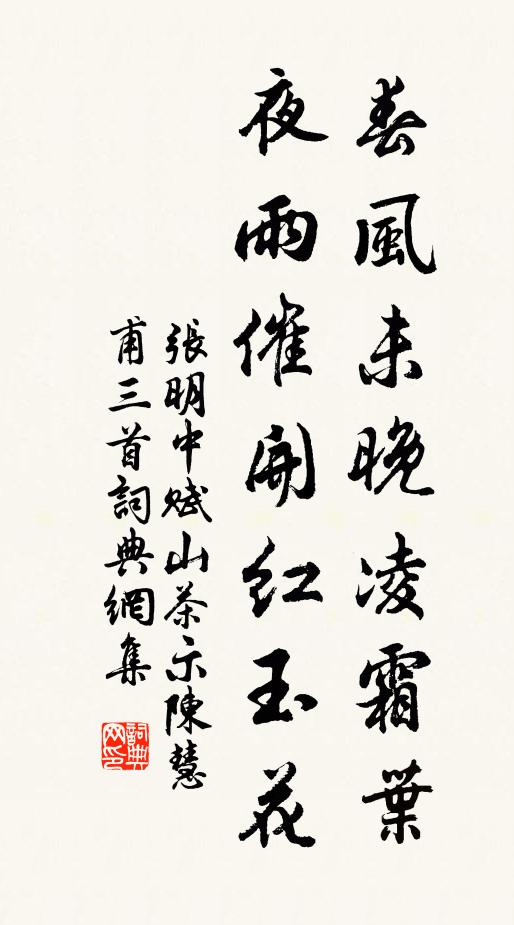 春風未晚凌霜葉
夜雨催開紅玉花
張明中賦山茶示陳慧
甫三首詞典網集
詞典网印